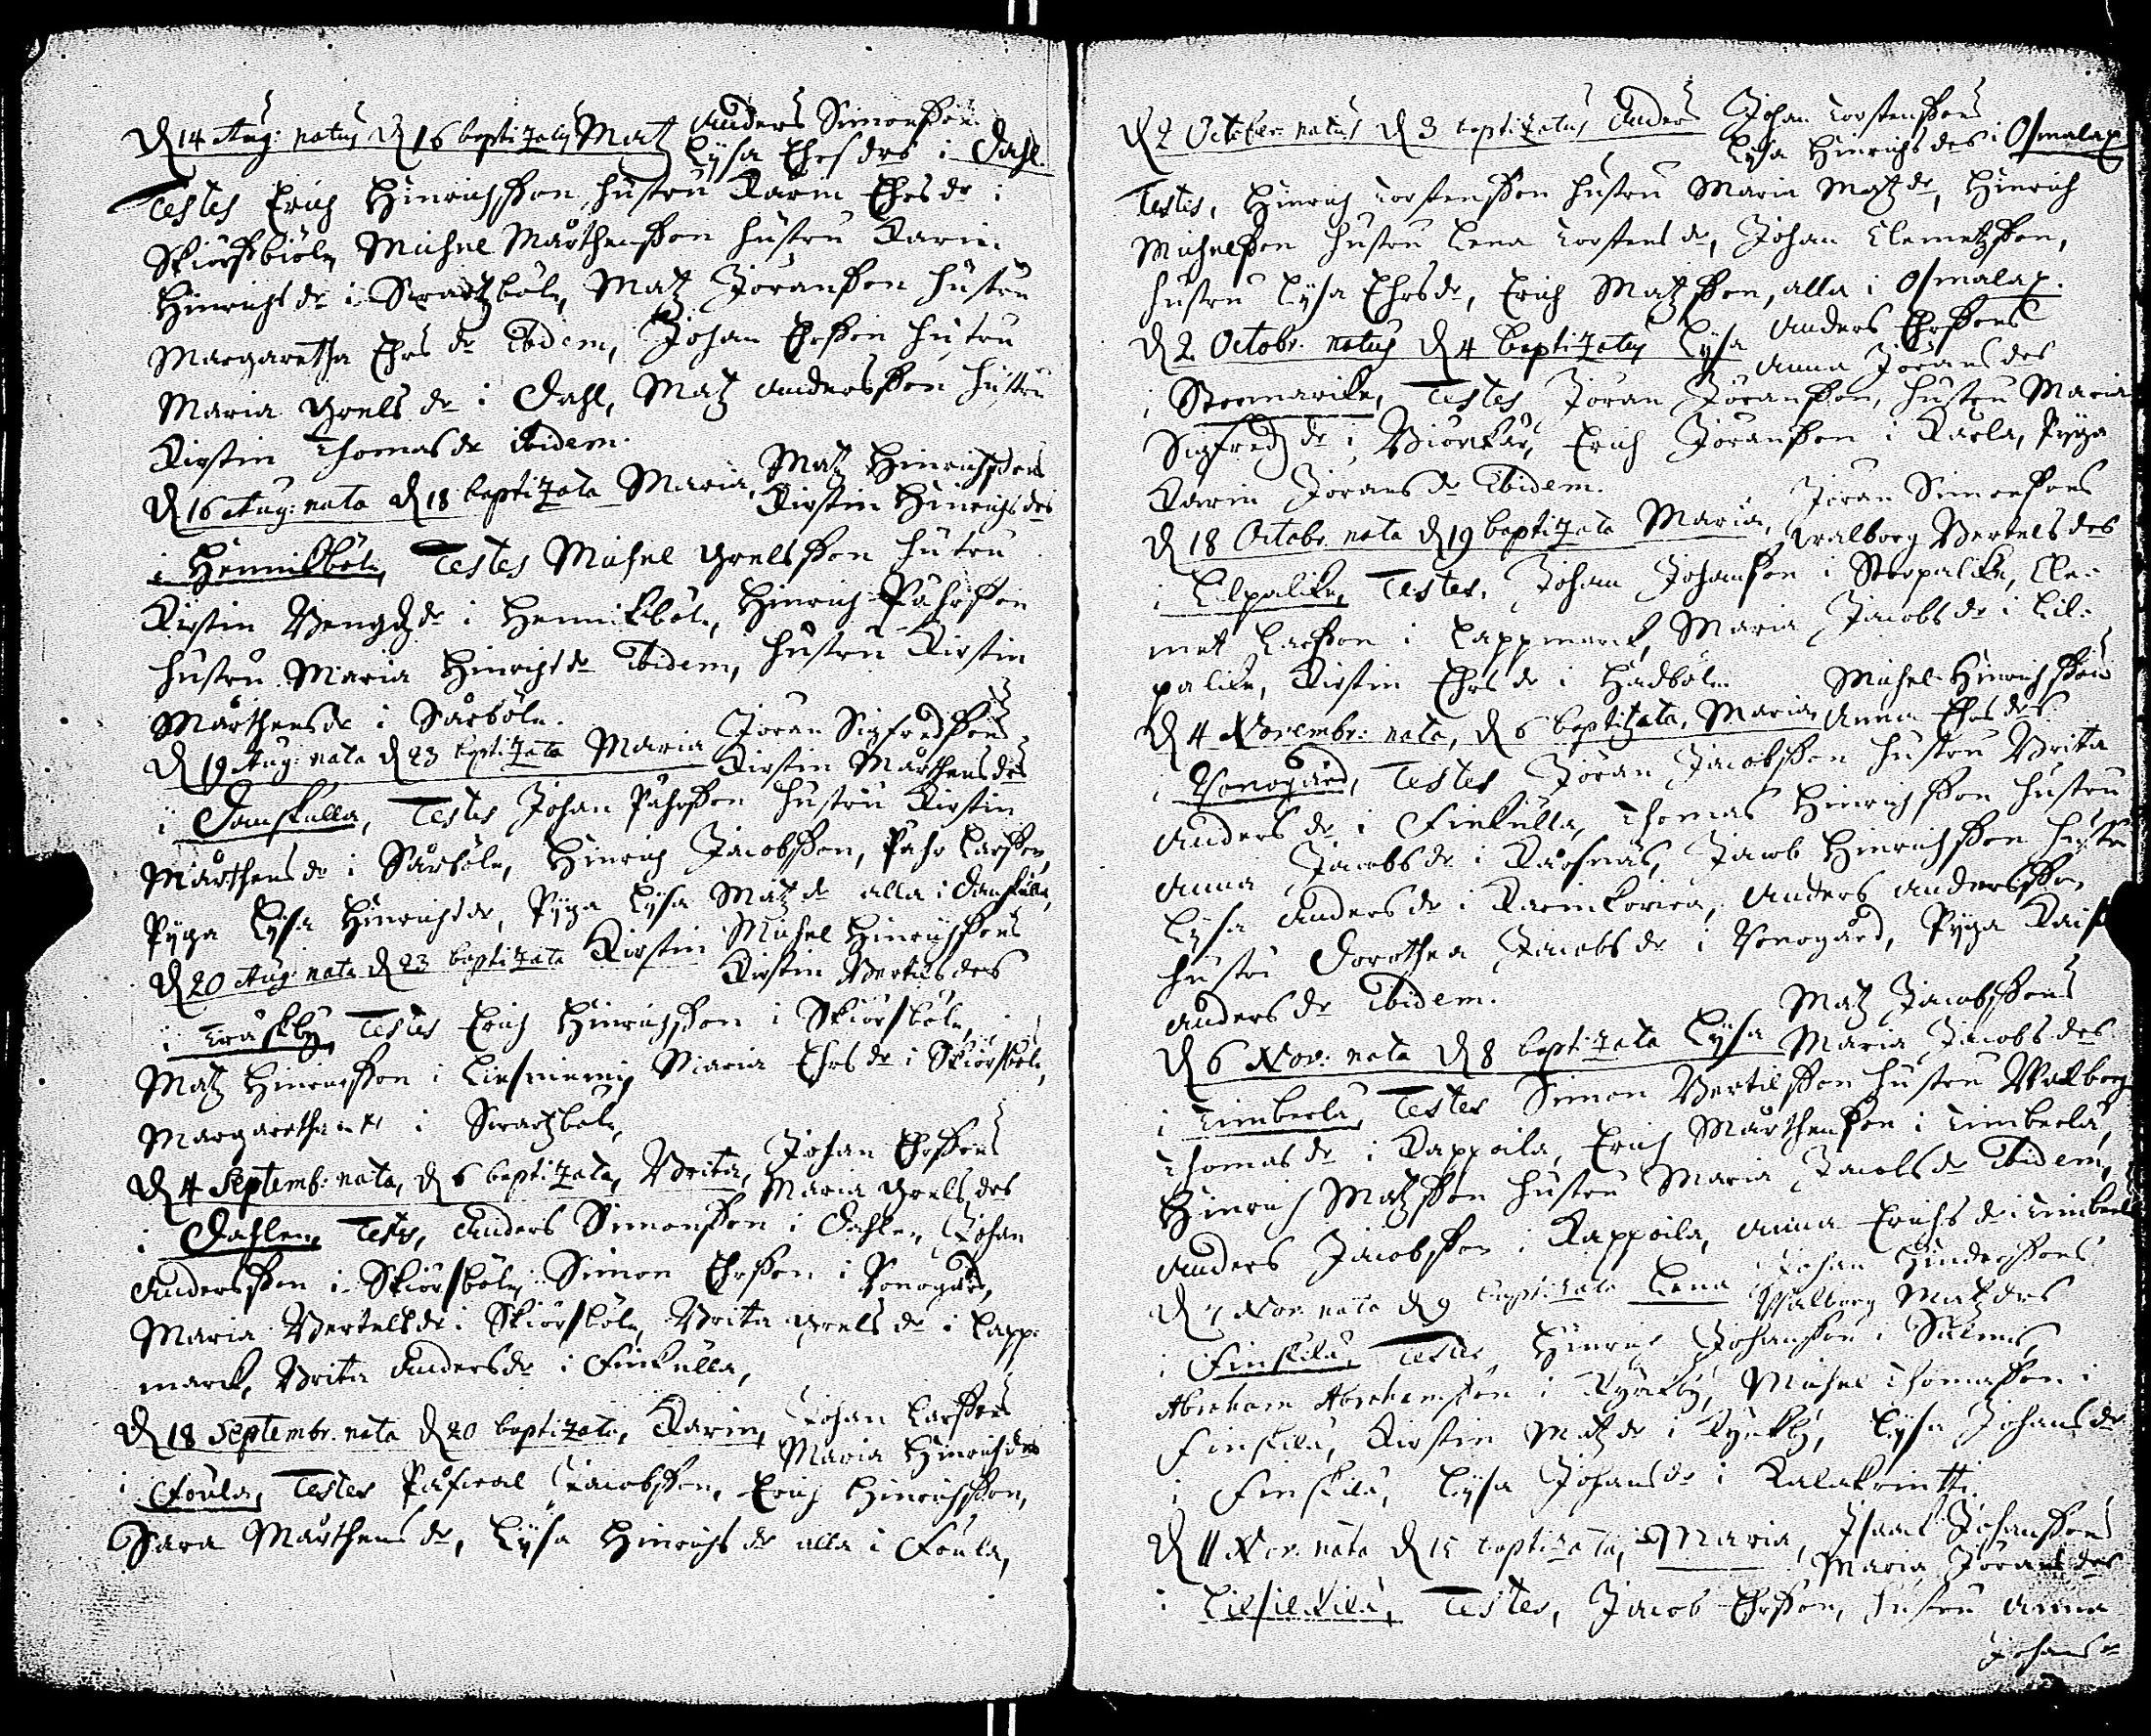 D 14 Aug: natus D 16 baptizatus Matz Anders Simonssons
Lysa Ehrsdrs i Dahl.
Testes Erich Hinrichsson hustru Karin Ehrsdr i
Skiörsböle, Michel Mårthensson hustru Karin
Hinrichsdr i Swartzböle, Matz Jöransson hustru
Margaretha Ehrsdr Ibidem, Johan Ehrsson hustru
Maria Grelsdr i Dahl, Matz Andersson hustru
Kirstin Thomasdr ibidem.
D 16 Aug: nata D 18 baptizata Maria, Matz Hinrichssons
Kirstin Hinrichsdrs
i Hennikböle, Testes Michel Grelsson hustru
Kirstin Bengdzdr i Hennikböle, Hinrich Påhrsson
hustru Maria Hinrichsdr Ibidem, hustru Kirstin
Mårthensdr i Sårböle.
D 19 Aug: nata D 23 baptizata Maria Jöran Sigfredssons
Kirstin Mårthensdrs
i Damskulla, Testes Johan Påhrsson hustru Kirstin
Mårthensdr i Sårböle, Hinrich Jacobsson, Påhr Larsson,
Pyga Lysa Hinrichsdr, Pyga Lysa Matzdr alla i Damskulla,
D 20 Aug: nata D 23 baptizata Kirstin Michel Hinrichssons
Kirstin Bertilsdrs
i Träskby, Testes Erich Hinrichsson i Skiörsböle,
Matz Hinrichsson i Liesniemi, Maria Ehrsdr i Skiörsböle,
Margaretha i Swartzböle,
D 4 Septemb: nata, D 6 baptizata, Brita, Johan Ehrssons
Maria Grelsdrs
i Dahlen, Testes, Anders Simonsson i Dahlen, Johan
Andersson i Skiörsböle, Simon Ehrsson i Bonogård,
Maria Bertelsdr i Skiörsböle, Brita Grelsdr i Capp-
marck, Brita Andersdr i Finkulla,
D 18 Septembr. nata D 20 baptizata, Karin, Johan Larssons
Maria Hinrichsdrs
i Foula, Testes Påfwal Jacobsson, Erich Hinrichsson,
Sara Mårthensdr, Lysa Hinrichsdr alla i Foula,
D 2 October natus D 3 baptizatus Anders Johan Torstenssons
Lysa Hinrichsdrs i Osmalax
Testis, Hinrich Torstensson hustru Maria Matzdr, Hinrich
Michelsson hustru Lena Torstensdr, Johan Clemetzson,
hustru Lysa Ehrsdr, Erich Matzsson, alla i Osmalax.
D 2 Octobr. natus D 4 baptizatus Lysa Anders Ehrssons
Anna Jöransdrs
i Stormarike, Testes Jöran Jöransson, hustru Maria
Sigfredzdr i Biörkår, Erich Jöransson i Karla, Pyga
Karin Jöransdr Ibidem.
D 18 Octobr. nata D 19 baptizata Maria, Jöran Simonssons
Walborg Bertelsdrs
i Lilpalike, Testes, Johan Johansson i Storpalike, Cle-
met Larsson i Cappmarck, Maria Jacobsdr i Lil-
palike, Kirstin Ehrsdr i Hadböle.
D 4 Novembr: nata, D 6 baptizata, Maria Michel Hinrichssons
Anna Ehrsdrs
i Bonogård, Testes Jöran Jacobsson hustru Brita
Andersdr i Finkulla, Thomas Hinrichsson hustru
Anna Jacobsdr i Kårsnäs, Jacob Hinrichsson hustru
Lysa Andersdr i Karinkorva, Anders Andersson
hustru Dorothea Jacobsdr i Bonogård, Pyga
Andersdr Ibidem.
D 6 Nov: nata D 8 baptizata Lysa Matz Jacobssons
Maria Jacobsdrs
i Timberla, Testes Simon Bertilsson hustru Walborg
Thomasdr i Kappoila, Erich Mårthensson i Timberla,
Hinrich Matzsson hustru Maria Jacobsdr Ibidem,
Anders Jacobsson i Kappoila, Anna Erichsdr i Timberla
D 7 Nov. nata D 9 baptizata Lena Johan Hinderssons
Walborg Matzdrs
i Finskila, Testes Hinrich Johansson i Sulemis,
Abraham Abrahamsson i Kyrkby, Michel Thomasson i
Finskila, Kirstin Matzdr i Kyrkby, Lysa Johansdr
i Finskila, Lysa Johansdr i Kalakrintti.
D 11 Nov. nata D 15 baptizata, Maria, Isaac Johanssons
Maria Jöransdrs
i Lilsilkila, Testes, Jacob Ehrsson, hustru Anna
Johansdr